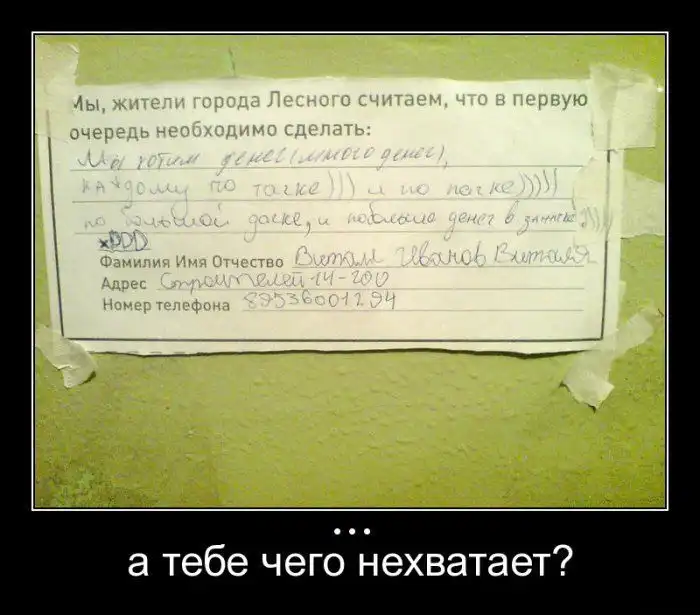 Мы, жители города Лесного считаем, что в первую
очередь необходимо сделать:
Мы хотим денег (много денег),
каждому по тачке))) и по пачке)))))
по большой доске, и побольше денег в
xDDD
Фамилия Имя Отчество Виталя Иванов Виталя
Адрес Строителей-14-200
Номер телефона 89536001294
...
а тебе чего нехватает?